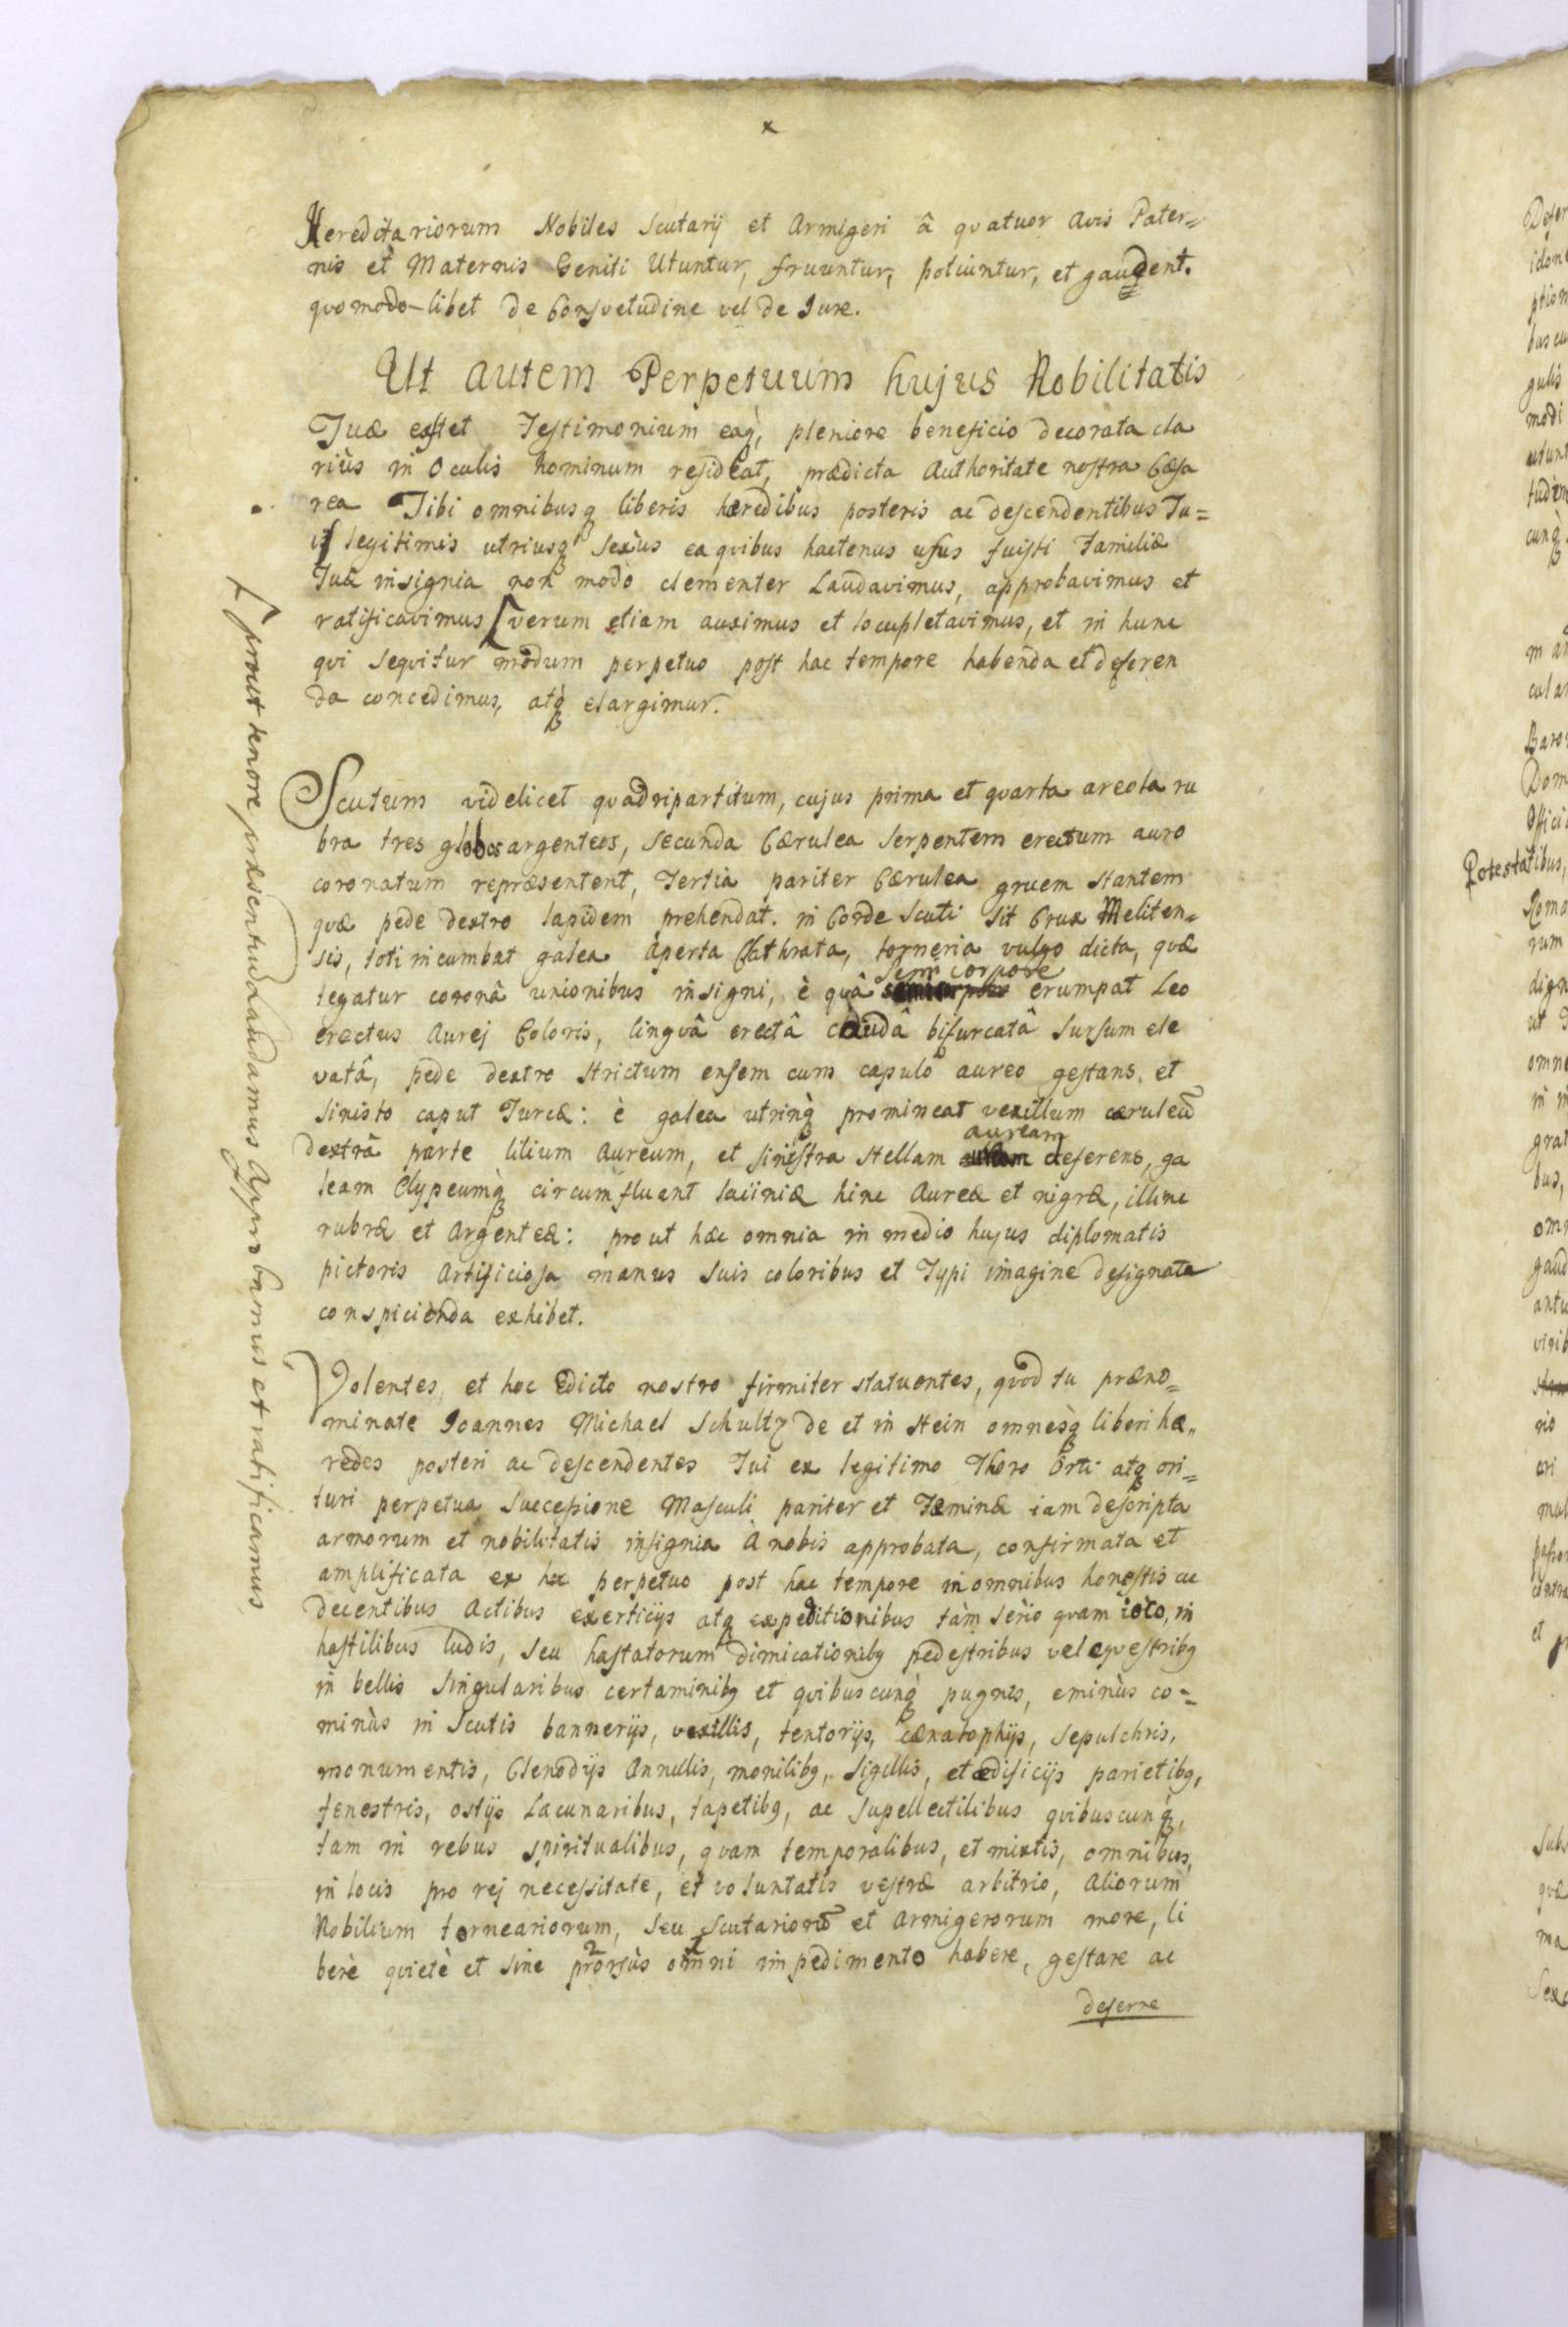 x
Hereditariorum Nobiles Scutarÿ et Armigeri â qvatuor Avis Pater=
nis et Maternis Geniti Utuntur, fruuntur, potiuntur, et gaudent.
qvomodo-libet de Consvetudine vel de Jure.
Ut autem Perpetuum hujus Nobilitatis
Tuæ esstet Testimonium eaq̀, pleniore beneficio decorata cla
riùs in Oculis hominum resideat, prædicta Authoritate nostra Cæsa
rea Tibi omnibusq liberis hæredibus posteris ac descendentibus Tu=
is legitimis utriusq Sexùs ea qvibus hactenus usus fuisti Familiæ
Tuæ insignia non modò clementer Laudavimus, approbavimus et
ratificavimus [verum etiam auximus et locupletavimus, et in hunc
qvi seqvitur modum perpetuo post hac tempore habenda et deferen
da concedimus, atq̀ elargimur.
[prout tenore præsentium Laudamus Approbamus et ratificamus
Scutum videlicet qvadripartitum, cujus prima et qvarta areola ru
bra tres globos argenteos, secunda Cærulea Serpentem erectum auro
coronatum repræsentent, Tertia pariter Cærulea gruem stantem
qvæ pede dextro lapidem prehendat. in Corde Scuti sit Crux Meliten=
sis, toti incumbat galea aperta Clathrata, torneria vulgo dicta, qvæ
tegatur coronâ unionibus insigni, è qvâ semi corpore erumpat Leo
erectus Aurej Coloris, lingvâ erectâ caudâ bifurcatâ sursum ele
vatâ, pede dextro strictum ensem cum capulo aureo gestans, et
sinisto caput Turcæ: è galea utrinq̀ promineat vexillum cæruleũ
dextrâ parte lilium Aureum, et sinistra stellam auream deferens, ga
leam Clypeumq̀ circumfluant laciniæ hinc Aureæ et nigræ, illinc
rubræ et Argenteæ: prout hæc omnia in medio hujus diplomatis
pictoris Artificiosa manus suis coloribus et Typi imagine designata
conspicienda exhibet.
Volentes, et hoc Edicto nostro firmiter statuentes, qvod tu præno=
minate Joannes Michael Schultz de et in Stein omnesq̀ liberi hæ„
redes posteri ac descendentes Tui ex legitimo Thoro Orti atq ori=
turi perpetua Successione Masculi pariter et Fæminæ iam descripta
armorum et nobilitatis insignia à nobis approbata, confirmata et
amplificata ex hoc perpetuo post hac tempore in omnibus honestis ac
decentibus Actibus exerticÿs atq expeditionibus tàm sèrio qvam ioco, in
hastilibus ludis, seu hastatorum dimicationibg pedestribus vel eqvestribg
in bellis singularibus certaminibg et qvibuscunq̀ pugnis, eminùs co=
minùs in Scutis bannerÿs, vexillis, tentorÿs, cænatophÿs, sepulchris,
monumentis, Clenodÿs Annullis, monilibg, sigillis, et ædificÿs parietibg,
fenestris, ostÿs Lacunaribus, tapetibg, ac supellectilibus qvibuscunq̀,
tam in rebus spiritualibus, qvam temporalibus, et mixtis, omnibus,
in locis pro rej necessitate, et voluntatis vestræ arbitrio, Aliorum
Nobilium torneariorum, seu Scutariorũ et Armigerorum more, li
berè qvietè et sine prorsùs 2 omni 1 impedimento habere, gestare ac
deferre
Potestatibus,